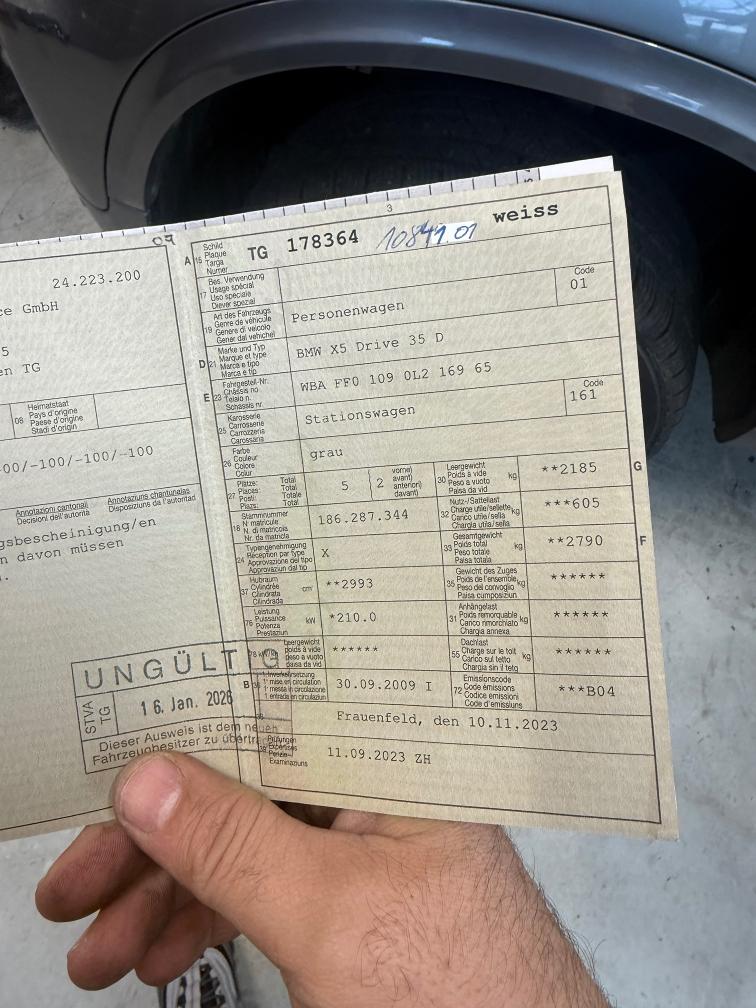 3
09
24.223.200
ce GmbH
5
en TG
08 Heimatstaat
Pays d'origine
Paese d'origine
Stadi d'origin
00/-100/-100/-100
Annotazioni cantonali
Decisioni dell'autorità
Annotaziuns chantunalas
Disposiziuns da l'autoritad
gsbescheinigung/en
n davon müssen
A 15 Schild
Plaque
Targa
Numer
TG 178364 weiss
17 Bes. Verwendung
Usage spécial
Uso speciale
Diever spezial
19 Art des Fahrzeugs
Genre de véhicule
Genere di veicolo
Gener dal vehichel
Personenwagen
Code
01
D 21 Marke und Typ
Marque et type
Marca e tipo
Marca e tip
BMW X5 Drive 35 D
E 23 Fahrgestell-Nr.
Châssis no
Telaio n.
Schassis nr.
WBA FF0 109 0L2 169 65
25 Karosserie
Carrosserie
Carrozzeria
Carossaria
Stationswagen
Code
161
26 Farbe
Couleur
Colore
Colur
grau
27 Plätze: Total
Places: Total
Posti: Totale
Plazs: Total
5
2 vorne)
avant)
anteriori)
davant)
30 Leergewicht
Poids à vide
Peso a vuoto
Paisa da vid
kg
**2185
G
18 Stammnummer
N° matricule
N. di matricola
Nr. da matricla
186.287.344
32 Nutz-/Sattellast
Charge utile/sellette
Carico utile/sella
Chargia utila/sella
kg
***605
24 Typengenehmigung
Réception par type
Approvazione del tipo
Approvaziun dal tip
X
33 Gesamtgewicht
Poids total
Peso totale
Paisa totala
kg
**2790
F
37 Hubraum
Cylindrée
Cilindrata
Cilindrada
cm³
**2993
35 Gewicht des Zuges
Poids de l'ensemble
Peso del convoglio
Paisa cumposiziun
kg
******
76 Leistung
Puissance
Potenza
Prestaziun
kW
*210.0
31 Anhängelast
Poids remorquable
Carico rimorchiato
Chargia annexa
kg
******
78 kW/kg
Leergewicht
poids à vide
peso a vuoto
paisa da vid
******
55 Dachlast
Charge sur le toit
Carico sul tetto
Chargia sin il tetg
kg
******
B 36 1. Inverkehrsetzung
1re mise en circulation
1a messa in circolazione
1. entrada en circulaziun
30.09.2009 I
72 Emissionscode
Code émissions
Codice emissioni
Code d'emissiuns
***B04
38
Frauenfeld, den 10.11.2023
39 Prüfungen
Expertises
Perizie
Examinaziuns
11.09.2023 ZH
UNGÜLTIG
STVA
TG
16. Jan. 2026
Dieser Ausweis ist dem neuen
Fahrzeugbesitzer zu